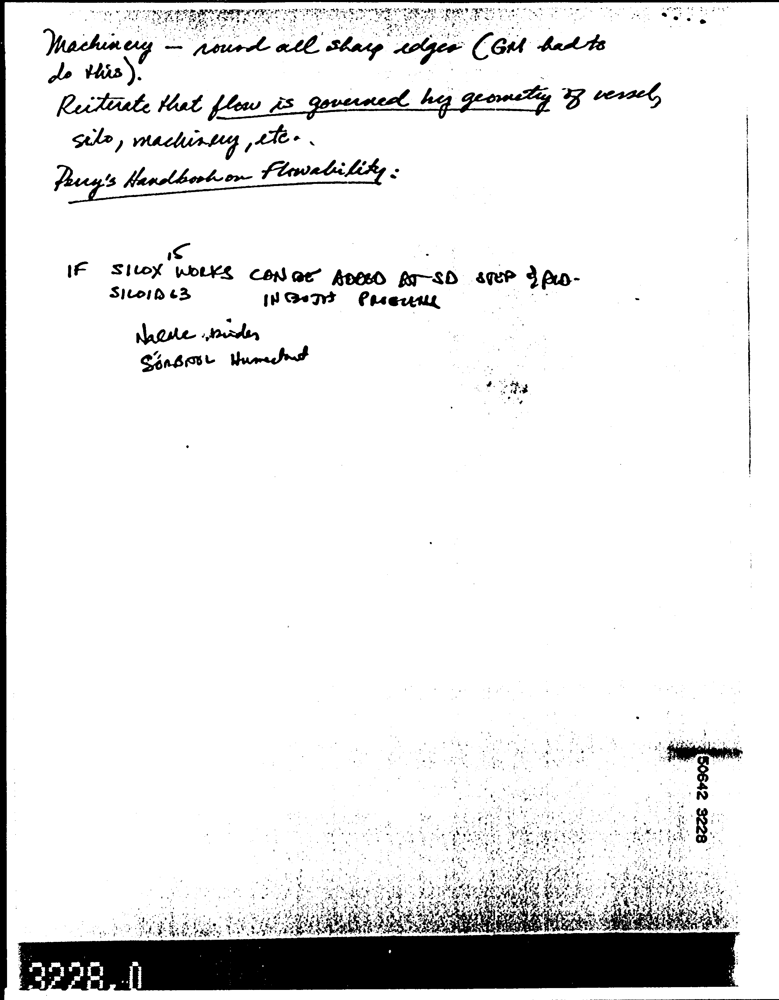 Machinery — round all sharp edges (GM had to
do this).
Reiterate that flow is governed by geometry of vessel,
silo, machinery, etc..
Perry's Handbook on Flowability:
15
IF SILOX WORKS CAN BE ADDED AT SD STEP
SILOID 63 IN
Binder
SORBITOL Humectant
50642 3228
3228.0